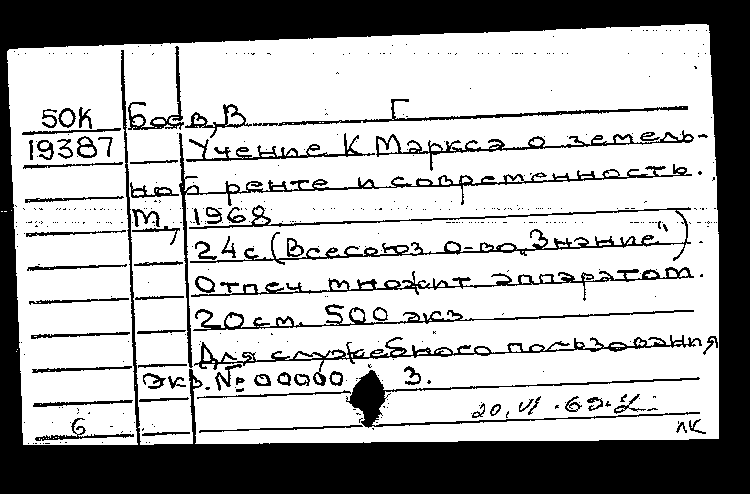 50К Боев, В Г
19387 Учение К Маркса о земель-
ной ренте и современность.
М., 1968
24 с. (Всесоюз. о-во „Знание").
Отпеч. множит. аппаратом.
20 см. 500 экз.
Для служебного пользования
Экз. № 00000 3.
20.VI.69
6 ЛК